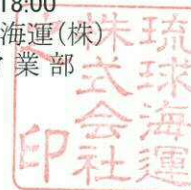 18:00
海運(株)
業部
琉球海運
株式会社
之印